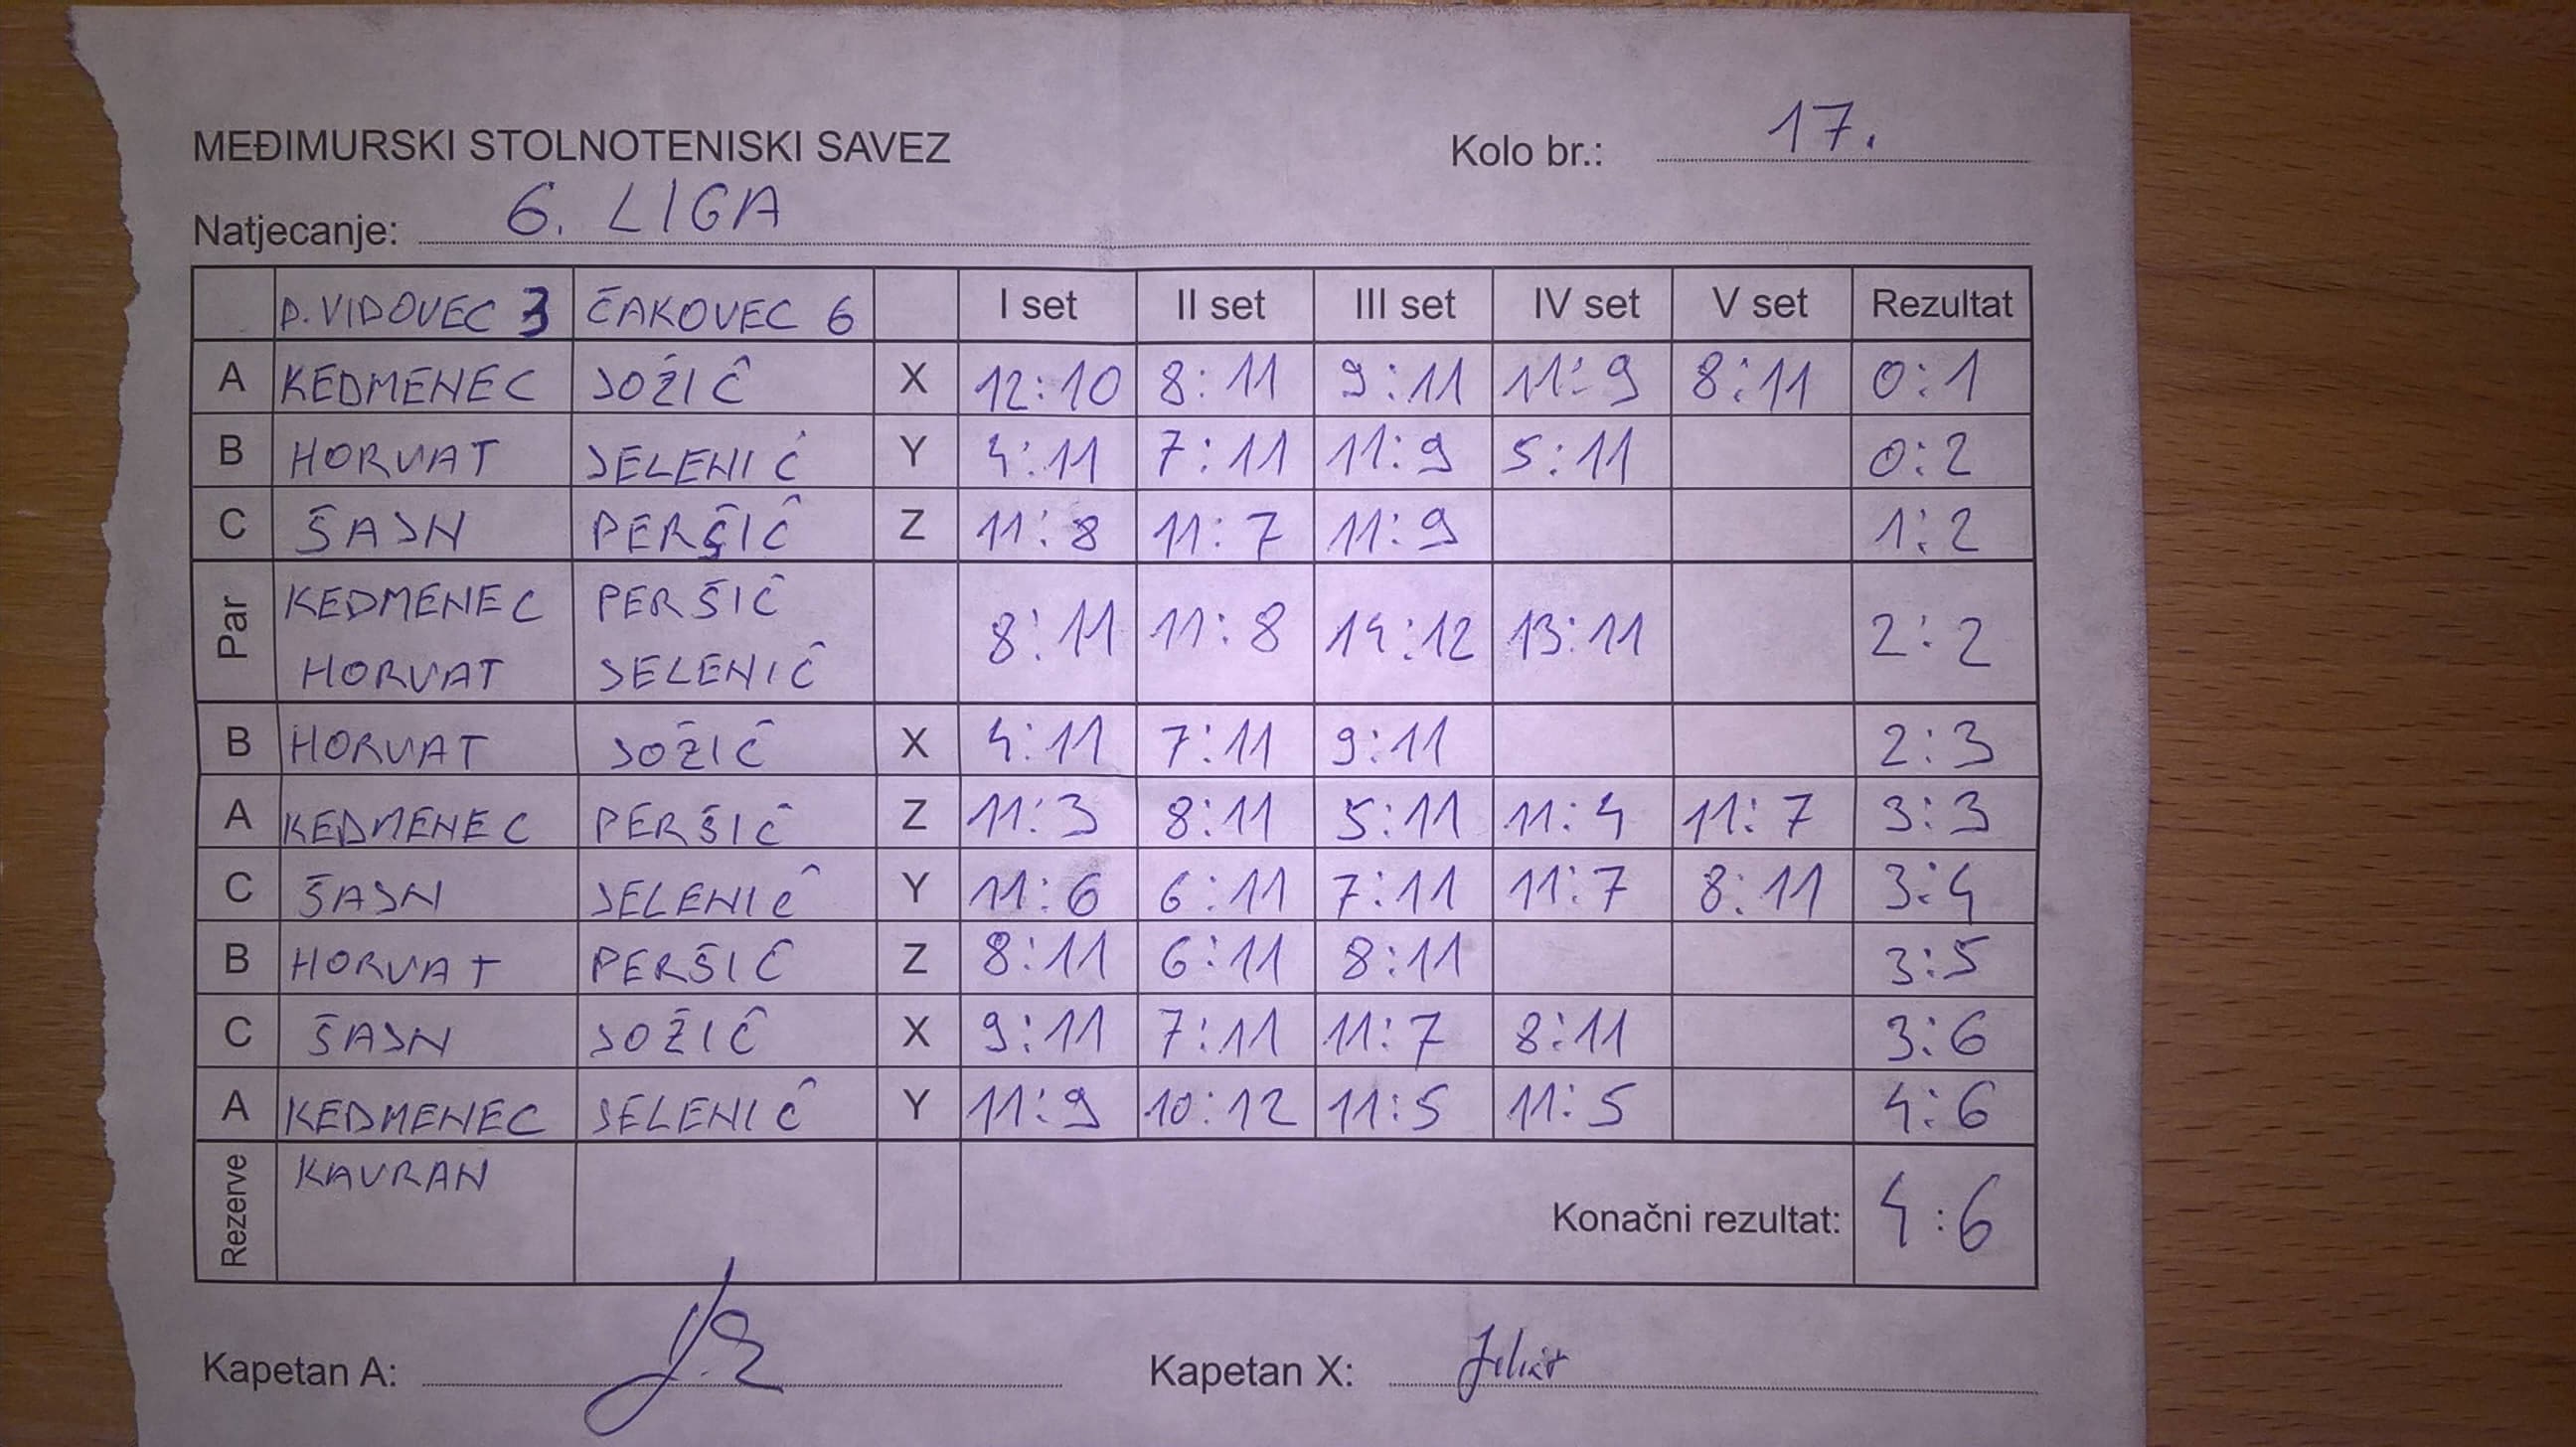 MEĐIMURSKI STOLNOTENISKI SAVEZ Kolo br.: 17.
Natjecanje: 6. LIGA
D. VIDOVEC 3 ČAKOVEC 6 I set II set III set IV set V set Rezultat
A KEDMENEC JOŽIĆ X 12:10 8:11 9:11 11:9 8:11 0:1
B HORVAT JELENIĆ Y 4:11 7:11 11:9 5:11 0:2
C ŠAJN PERŠIĆ Z 11:8 11:7 11:9 1:2
Par KEDMENEC PERŠIĆ 8:11 11:8 14:12 13:11 2:2
HORVAT JELENIĆ
B HORVAT JOŽIĆ X 4:11 7:11 9:11 2:3
A KEDMENEC PERŠIĆ Z 11:3 8:11 5:11 11:4 11:7 3:3
C ŠAJN JELENIĆ Y 11:6 6:11 7:11 11:7 8:11 3:4
B HORVAT PERŠIĆ Z 8:11 6:11 8:11 3:5
C ŠAJN JOŽIĆ X 9:11 7:11 11:7 8:11 3:6
A KEDMENEC JELENIĆ Y 11:9 10:12 11:5 11:5 4:6
Rezerve KAVRAN Konačni rezultat: 4:6
Kapetan A: Kapetan X: